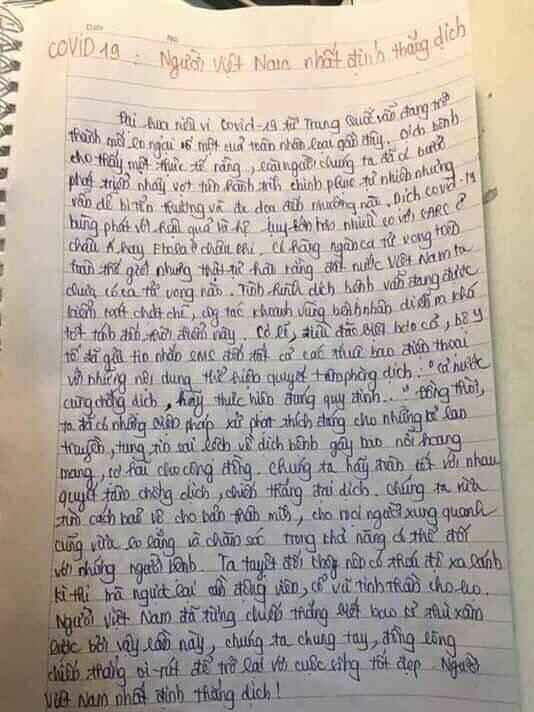 Date No.
COVID 19 : Người Việt Nam nhất định thắng dịch
Thị họa nCoV Covid-19 từ Trung Quốc vẫn đang trở
thành mối lo ngại số một của toàn nhân loại gần đây. Dịch bệnh
cho thấy một thực tế rằng, con người chúng ta đã có bước
phát triển nhảy vọt tiến hành trình chinh phục tự nhiên nhưng
vẫn dễ bị tổn thương và đe dọa đến nhường nào. Dịch covid-19
bùng phát với hậu quả và hệ lụy lớn hơn nhiều so với SARC ở
châu Á hay Ebola ở châu Phi. Có hàng ngàn ca tử vong trên
toàn thế giới nhưng thật tự hào rằng đất nước Việt Nam ta
chưa có ca tử vong nào. Tình hình dịch bệnh vẫn đang được
kiểm soát chặt chẽ, công tác khoanh vùng bệnh nhân diễn ra khá
tốt tính đến thời điểm này. Có lẽ, điều đặc biệt hơn cả, bộ y
tế đã gửi tin nhắn SMC đến tất cả các thuê bao điện thoại
với những nội dung thể hiện quyết tâm phòng dịch: "cả nước
cùng chống dịch, hãy thực hiện đúng quy định..." Đồng thời,
ta đã có những biện pháp xử phạt thích đáng cho những kẻ lan
truyền, tung tin sai lệch về dịch bệnh gây bao nỗi hoang
mang, sợ hãi cho cộng đồng. Chúng ta hãy đoàn kết với nhau
quyết tâm chống dịch, chiến thắng đại dịch. Chúng ta vừa
tìm cách bảo vệ cho bản thân mình, cho mọi người xung quanh
cũng vừa lo lắng và chăm sóc trong khả năng có thể đối
với những người bệnh. Ta tuyệt đối không nên có thái độ xa lánh
kì thị mà ngược lại cần động viên, cổ vũ tinh thần cho họ.
Người Việt Nam đã từng chiến thắng biết bao kẻ thù xâm
lược bởi vậy lần này, chúng ta chung tay, đồng lòng
chiến thắng vi-rút để trở lại với cuộc sống tốt đẹp. Người
Việt Nam nhất định thắng dịch!